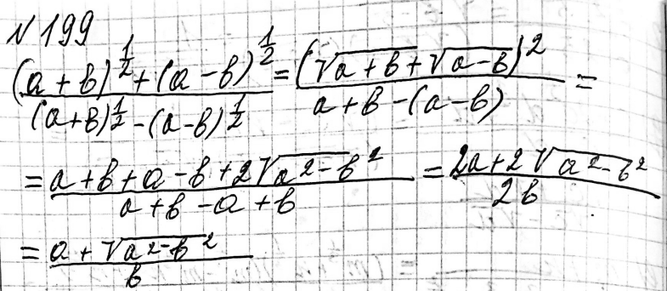 № 199
((a+b)^{1/2} + (a-b)^{1/2}) / ((a+b)^{1/2} - (a-b)^{1/2}) = (√(a+b) + √(a-b))^2 / (a+b-(a-b)) =
= (a+b+a-b+2√(a^2-b^2)) / (a+b-a+b) = (2a+2√(a^2-b^2)) / (2b)
= (a+√(a^2-b^2)) / b